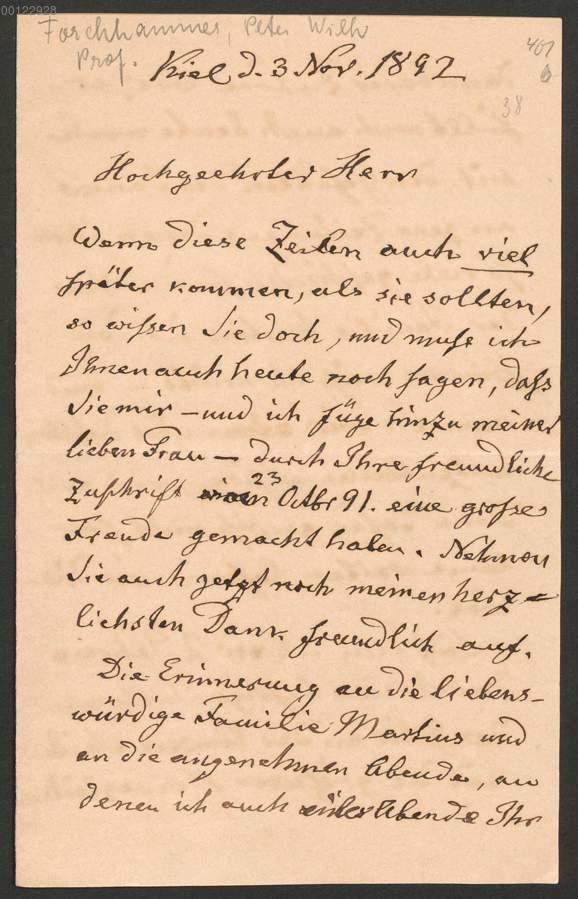 00122928
Forchhammer, Peter Wilh
Prof.
401
Kiel d. 3 Nov. 1892
38
Hochgeehrter Herr
Wenn diese Zeilen auch viel
später kommen, als sie sollten,
so wissen Sie doch, und muss ich
Ihnen auch heute noch sagen, dass
Sie mir – und ich füge hinzu meiner
lieben Frau – durch Ihre freundliche
Zuschrift 23 Octbr 91. eine grosse
Freude gemacht haben. Nehmen
Sie auch jetzt noch meinen herz=
lichsten Dank freundlich auf.
Die Erinnerung an die liebens-
würdige Familie Martius und
an die angenehmen Abende, an
denen ich auch Abende Ihr